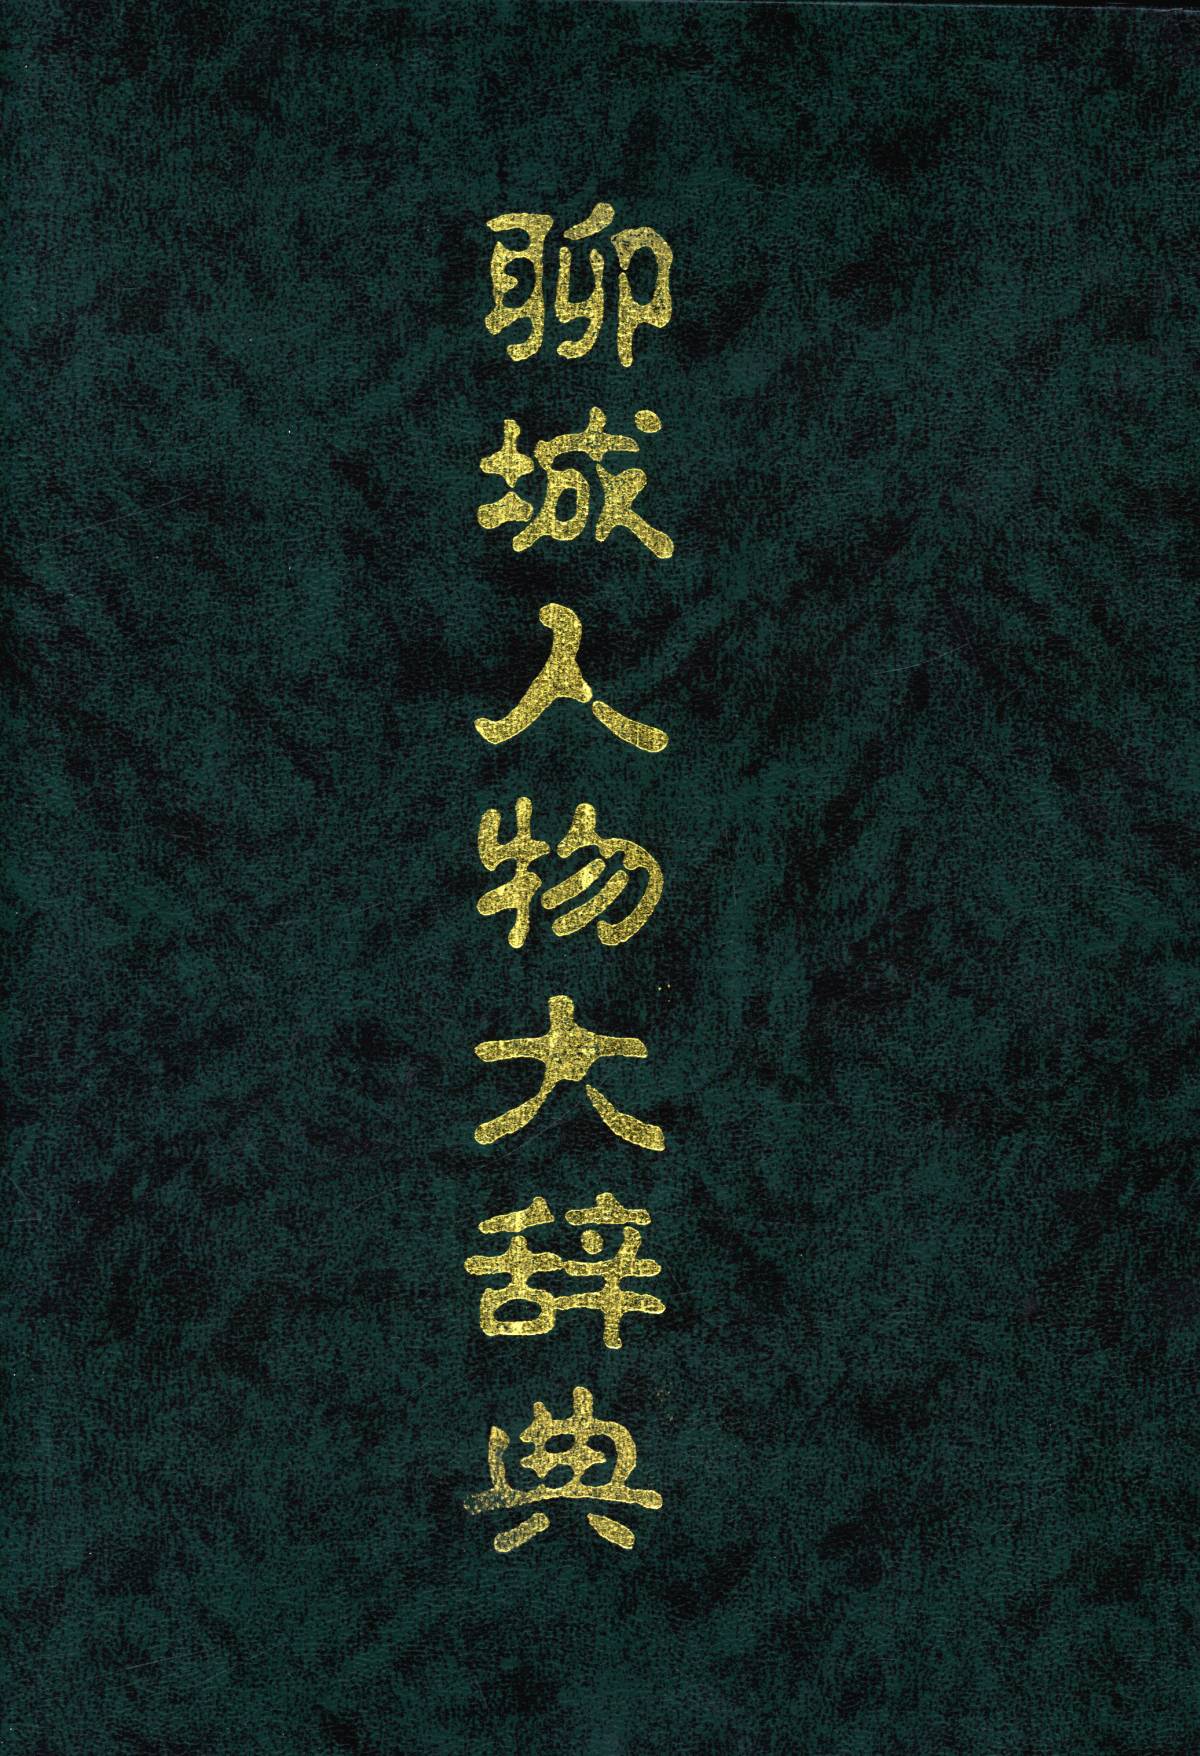 聊城人物大辞典